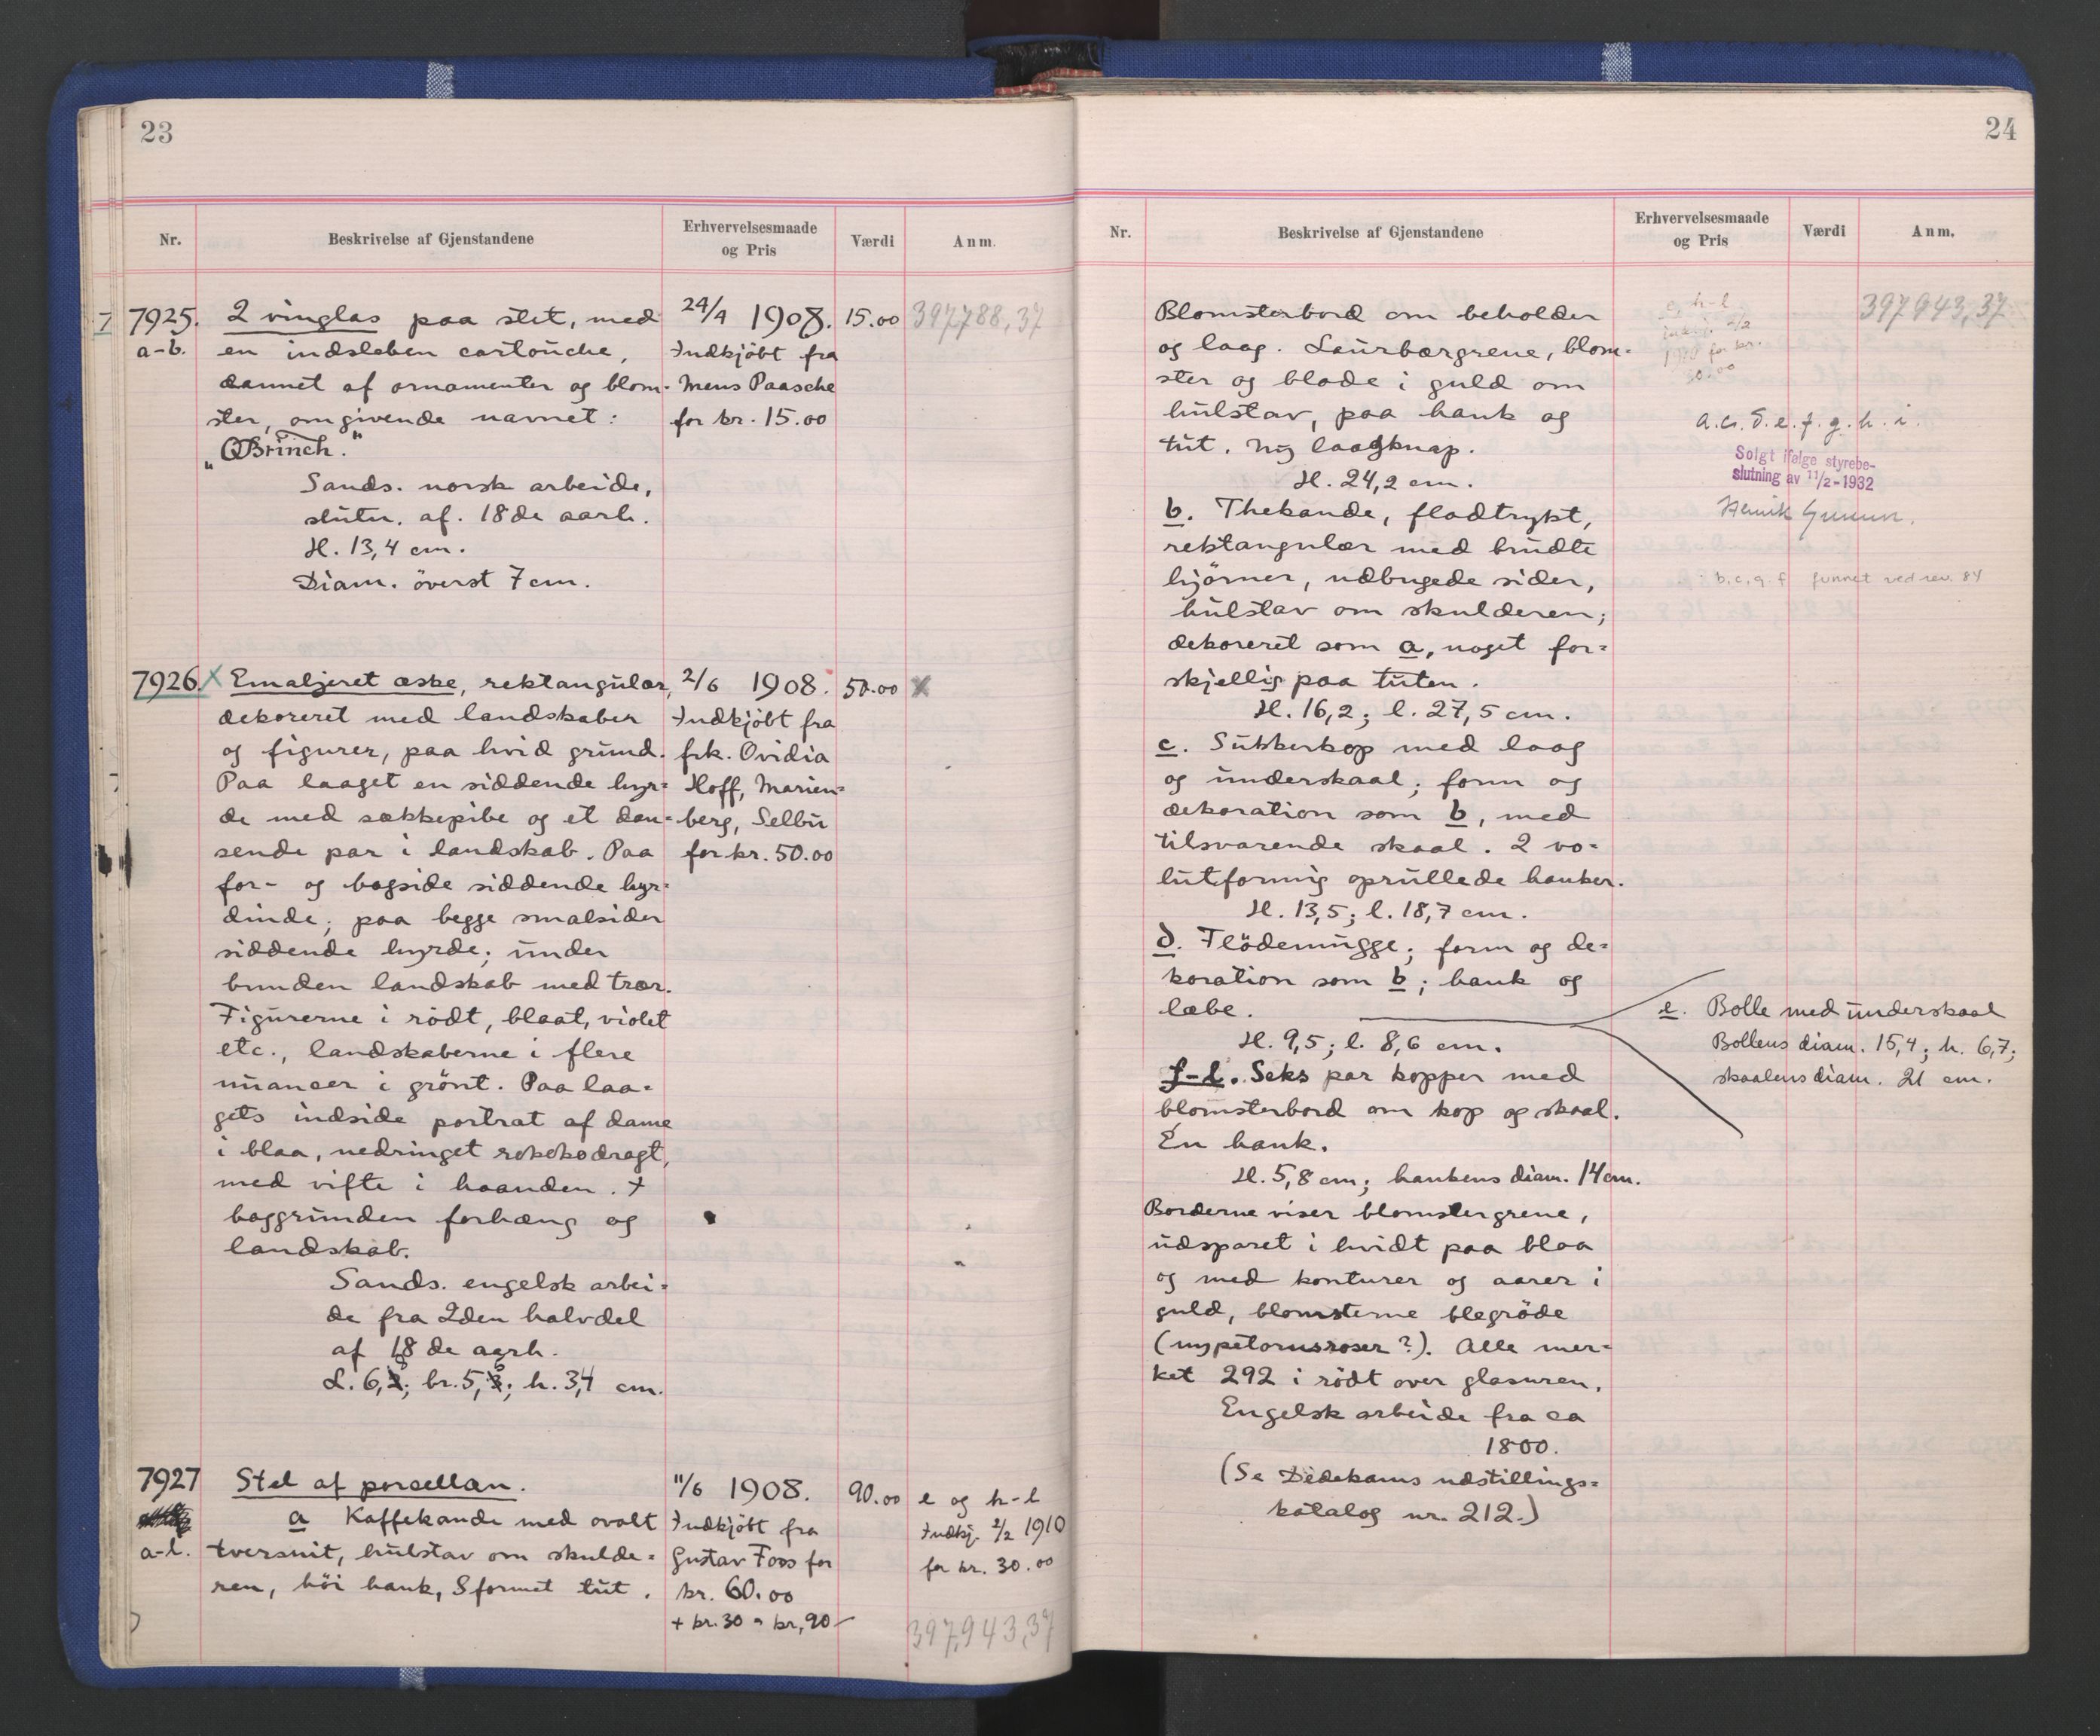 23
Nr.
Beskrivelse af Gjenstandene
Erhvervelsesmaade
og Pris
Værdi
Anm.
7 7925. 2 vinglas paa stet, med 24/4 1908. 15.00 397788,37
a-b. en indsleben cartouche, Indkjöbt fra
dannet af ornamenter og blom- Mens Paasche
ster, omgivende navnet: for kr. 15.00
"Brinch."
Sands. norsk arbeide,
slutn. af. 18de aarh.
H. 13,4 cm.
Diam. överst 7 cm.
7926. x Emaljeret æske, rektangulær, 2/6 1908. 50.00 x
dekoreret med landskaber Indkjöbt fra
og figurer, paa hvid grund. frk. Ovidia
Paa laaget en siddende hyr- Hoff, Marien-
de med sækkepibe og et dan- berg, Selbu
sende par i landskab. Paa for kr. 50.00
for- og bagside siddende hyr-
dinde; paa begge smalsider
siddende hyrde; under
bunden landskab med trær.
Figurerne i rödt, blaat, violet
etc., landskaberne i flere
nuancer i grönt. Paa laa-
gets indside portræt af dame
i blaa, nedringet rokokodragt,
med vifte i haanden. I
baggrunden forhæng og
landskab.
Sands. engelsk arbei-
de fra 2den halvdel
af 18de aarh.
L. 6, br. 5, h. 3,4 cm.
7927 Stel af porcellæn. 11/6 1908. 90.00 e og h-l
a Kaffekande med ovalt Indkjöbt fra Indkj. 2/2 1910
a-l. tversnit, hulstav om skulde- Gustav Foss for for kr. 30.00
ren, höi hank, S formet tut. kr. 60.00
+ kr. 30 = kr, 90
397,943,37
24
Nr.
Beskrivelse af Gjenstandene
Erhvervelsesmaade
og Pris
Værdi
Anm.
Blomsterbord om beholder h-l 397943,37
og laag. Laurbærgrene, blom- indkj. 2/2
ster og blade i guld om 1910 for kr.
30.00
hulstav, paa hank og a.c.d.e.f.g.h.i.
tut. Ny laagknap.
Solgt ifølge styrebe-
slutning av 11/2-1932
H. 24,2 cm.
b. Thekande, fladtrykt, Henrik
rektangulær med brudte
hjörner, udbugede sider, b.c.g.f funnet ved rev. 84
hulstav om skulderen;
dekoreret som a, noget for-
skjellig paa tuten.
H. 16,2; l. 27,5 cm.
c. Sukkerkop med laag
og underskaal; form og
dekoration som b, med
tilsvarende skaal. 2 vo-
lutformig oprullede hanker.
H. 13,5; l. 18,7 cm.
d. Flödemugge; form og de-
koration som b; hank og
læbe.
e. Bolle med underskaal
Bollens diam. 15,4; h. 6,7;
skaalens diam. 21 cm.
H. 9,5; l. 8,6 cm.
f-l. Seks par kopper med
blomsterbord om kop og skaal.
Én hank.
H. 5,8 cm; hankens diam. 14 cm.
Borderne viser blomstergrene,
udsparet i hvidt paa blaa
og med konturer og aarer i
guld, blomsterne blegröde
(nypetornsroser?). Alle mer-
ket 292 i rödt over glasuren.
Engelsk arbeide fra ca
1800.
(Se Dedekams udstillings-
katalog nr. 212.)